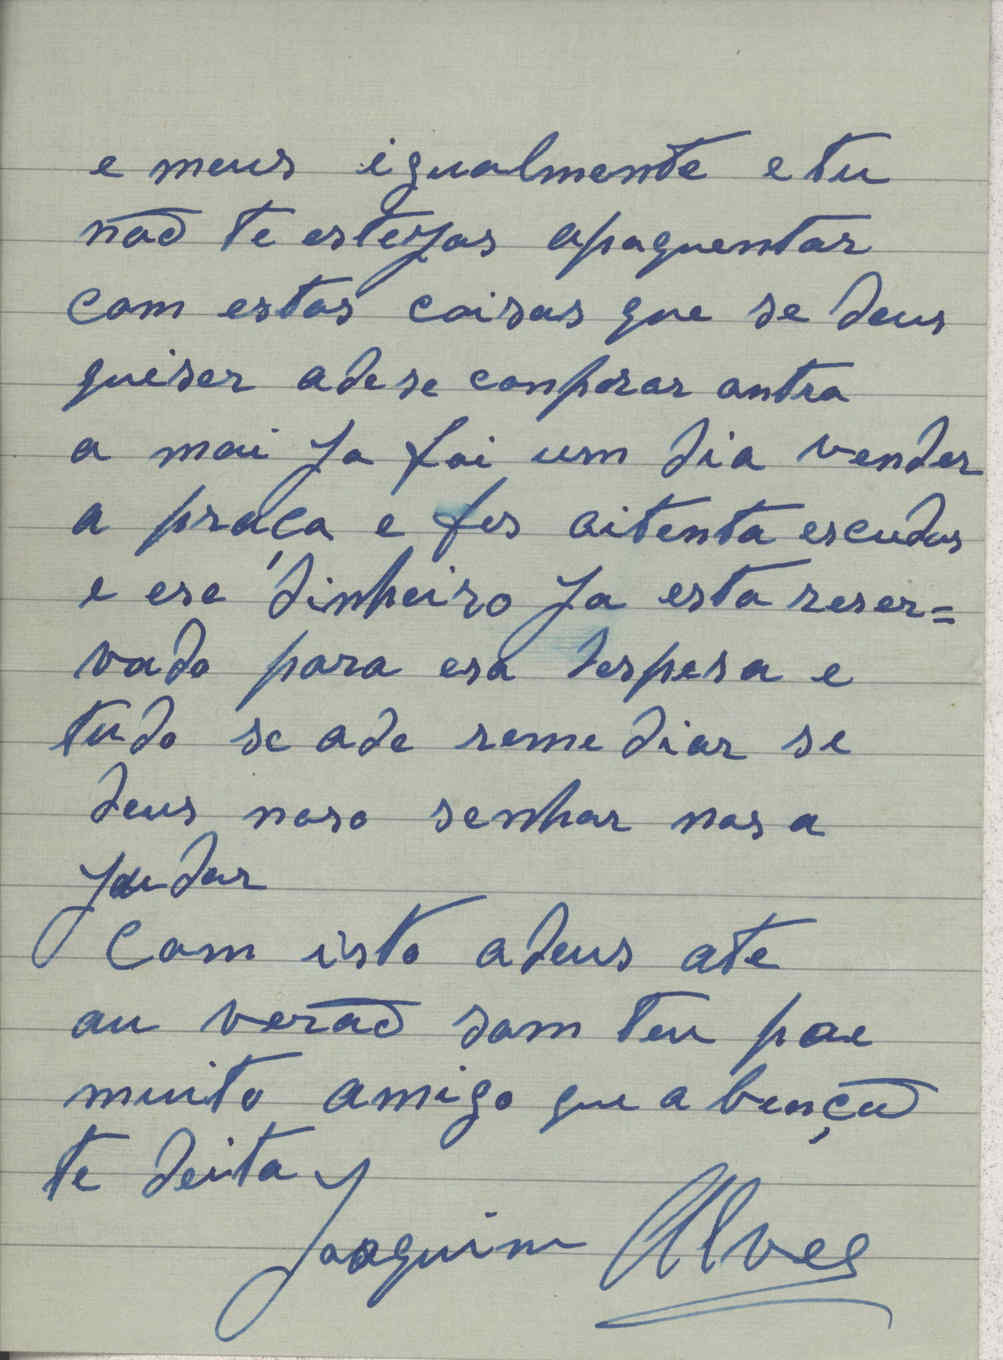 e meus igualmente e tu
não te estejas apoquentar
com estas coisas que se deus
quiser ade se comprar outra
a mai ja foi um dia vender
a praça e fes oitenta escudos
e ese dinheiro ja esta reser=
vado para esa despesa e
tudo se ade remediar se
deus noso senhor nos a
judar
Com isto adeus ate
au verão som teu pae
muito amigo que a bençao
te deita
Joaquim Alves